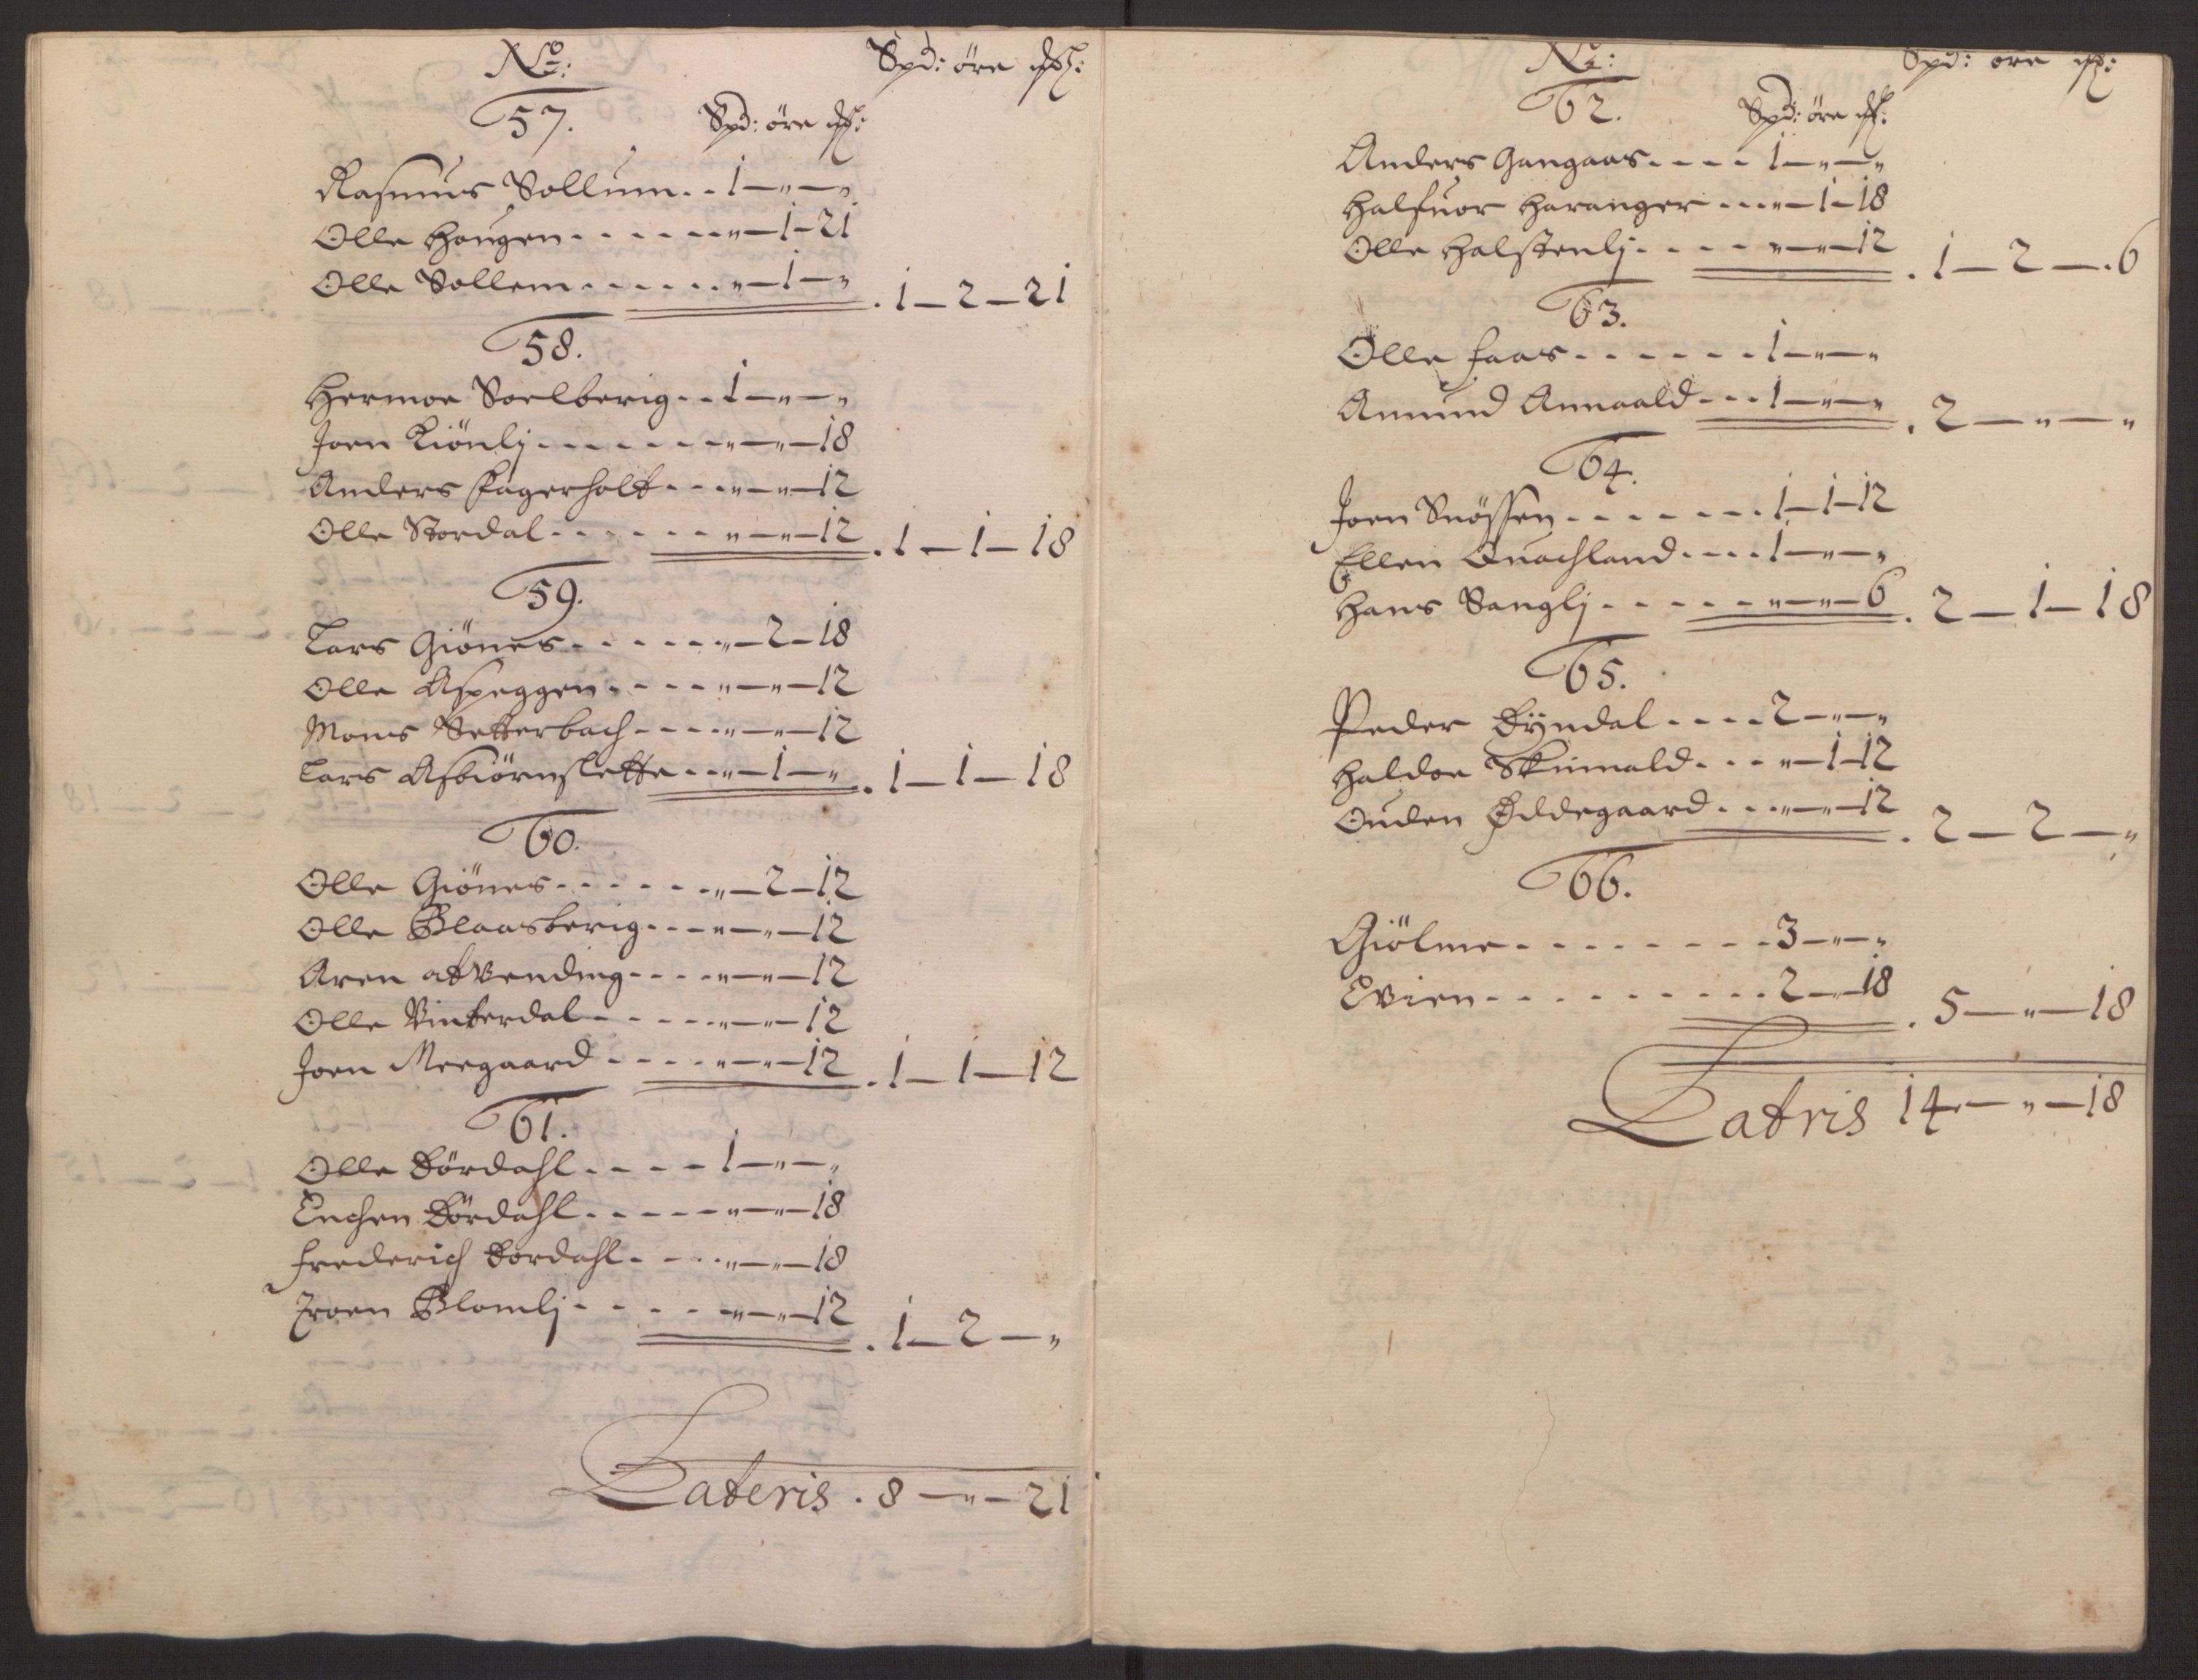 No:
Spd: öre
57.
Spd: öre
Rasmus Sollum . . 1 — „ — „
Olle Haugen . . . . . . „ — 1 — 21
Olle Sollem . . . . . . „ — 1 — „ . 1 — 2 — 21
58.
Hermoe Soelberig . . 1 — „ — „
Joen Kiönlj . . . . . . . „ — „ — 18
Anders Fagerholt . . . „ — „ — 12
Olle Stordal . . . . . . „ — „ — 12 . 1 — 1 — 18
59.
Lars Giönes . . . . . . „ — 2 — 18
Olle Aspeggen . . . . . „ — „ — 12
Mons Setterbach . . . . „ — „ — 12
Lars Asbiörnslette . . „ — 1 — „ . 1 — 1 — 18
60.
Olle Giönes . . . . . . „ — 2 — 12
Olle Blaasberig . . . „ — „ — 12
Aren atvending . . . . „ — „ — 12
Olle Vinterdal . . . . . „ — „ — 12
Joen Meegaard . . . . . „ — „ — 12 . 1 — 1 — 12
61.
Olle Bördahl . . . . . 1 — „ — „
Enchen Bördahl . . . . . „ — „ — 18
Frederich Bordahl . . . . „ — „ — 18
Iroen Blomlj . . . . . „ — „ — 12 . 1 — 2 — „
Lateris . 8 — „ — 21
No:
Spd: öre
62.
Spd: öre
Anders Gangaas . . . . 1 — „ — „
Halfuor Haranger . . . „ — 1 — 18
Olle Halstenlj . . . . „ — „ — 12 . 1 — 2 — . 6
63.
Olle Faas . . . . . . . 1 — „ — „
Amund Annaald . . . 1 — „ — „ . 2 — „ — „
64.
Joen Snössen . . . . . . . 1 — 1 — 12
Ellen Quachland . . . . 1 — „ — „
Hans Sanglj . . . . . . „ — „ — 6 . 2 — 1 — 18
65.
Peder Dÿndal . . . . 2 — „ — „
Haldoe Skumald . . . . „ — 1 — 12
Ouden Ödegaard . . . „ — „ — 12 . 2 — 2 — „
66.
Giölme . . . . . . . . . 3 — „ — „
Evien . . . . . . . . . . 2 — „ — 18 . 5 — „ — 18
Latris 14 — „ — 18